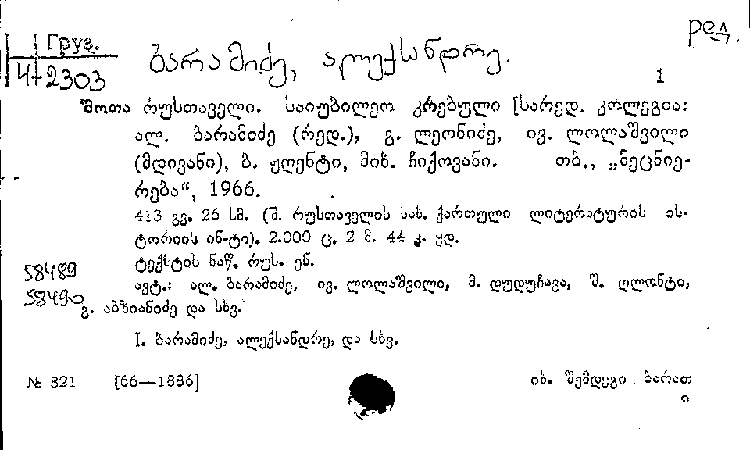 ред.
Груз.
4-2303
ბარამიძე, ალექსანდრე.
1
შოთა რუსთაველი. საიუბილეო კრებული [სარედ. კოლეგია:
ალ. ბარამიძე (რედ.), გ. ლეონიძე, ივ. ლოლაშვილი
(მდივანი), ბ. ჟღენტი, მიხ. ჩიქოვანი. თბ., „მეცნიე-
რება“, 1966.
413 გვ. 26 სმ. (შ. რუსთაველის სახ. ქართული ლიტერატურის ის-
ტორიის ინ-ტი). 2.000 ც. 2 მ. 44 კ. ყდ.
ტექსტის ნაწ. რუს. ენ.
58489
ავტ.: ალ. ბარამიძე, ივ. ლოლაშვილი, მ. დუდუჩავა, შ. ღლონტი,
58490
გ. აბზიანიძე და სხვ.
I. ბარამიძე, ალექსანდრე, და სხვ.
№ 321 [66—1886]
იხ. შემდეგი ბარათ
ი